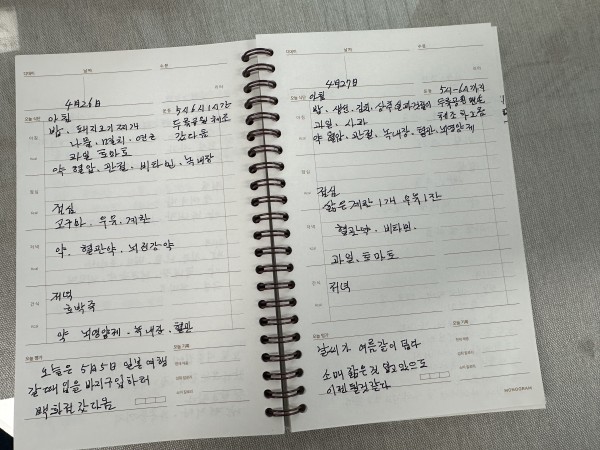 4月26日
아침
5시6시 1시간
밥. 돼지고기 찌개
두류공원 체조
나물. 멸치. 연근
갔다옴
과일 토마토
약 혈압. 관절. 비타민. 녹내장
점심
고구마. 우유. 계란
약. 혈관약. 뇌건강약
저녁
호박죽
약 뇌영양제. 녹내장 혈관
오늘은 5月5日 일본 여행
갈때 입을 바지 구입하러
백화점 갔다옴
4月27日
아침
5시-6시까지
밥. 생선. 김치.
두류공원
과일. 사과
체조
약 혈압. 관절. 녹내장. 혈관. 뇌영양제
점심
삶은계란 1개 우유 1잔
혈관약. 비타민.
과일. 토마토
저녁
날씨가 여름같이 덥다
소매 짧은것 입고 있으도
이젠 될것같다
MONOGRAM